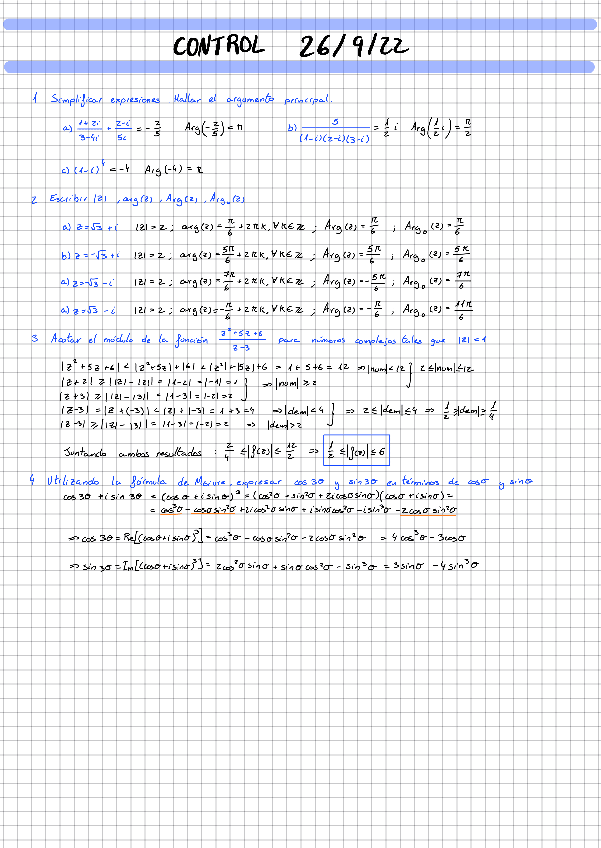 CONTROL 26/9/22
1 Simplificar expresiones Hallar el argumento principal.
a) (1+2i)/(3-4i) + (2-i)/(5i) = -2/5 Arg(-2/5) = π b) 5/((1-i)(2-i)(3-i)) = 1/2 i Arg(1/2 i) = π/2
c) (1-i)^4 = -4 Arg(-4) = π
2 Escribir |z|, arg(z), Arg(z), Arg₀(z)
a) z=√3 + i |z| = 2; arg(z) = π/6 + 2πk, ∀k∈ℤ; Arg(z) = π/6; Arg₀(z) = π/6
b) z=-√3 + i |z| = 2; arg(z) = 5π/6 + 2πk, ∀k∈ℤ; Arg(z) = 5π/6; Arg₀(z) = 5π/6
a) z=-√3 - i |z| = 2; arg(z) = 7π/6 + 2πk, ∀k∈ℤ; Arg(z) = -5π/6; Arg₀(z) = 7π/6
a) z=√3 - i |z| = 2; arg(z) = -π/6 + 2πk, ∀k∈ℤ; Arg(z) = -π/6, Arg₀(z) = 11π/6
3 Acotar el módulo de la función (z²+5z+6)/(z-3) para números complejos tales que |z|=1
|z²+5z+6| < |z²+5z|+|6| < |z²|+|5z|+6 = 1+5+6 = 12 ⇒ |num|<12 } 2≤|num|≤12
|z+2| ≥ ||z|-|2|| = |1-2| = |-1| = 1 } ⇒ |num| ≥ 2
|z+3| ≥ ||z|-|3|| = |1-3| = |-2| = 2
|z-3| = |z+(-3)| < |z|+|-3| = 1+3 = 4 ⇒ |dem|<4 } ⇒ 2≤|dem|≤4 ⇒ 1/2 ≥ |dem| ≥ 1/4
|z-3| ≥ ||z|-|3|| = |1-3| = |-2| = 2 ⇒ |dem|>2
Juntando ambos resultados: 2/4 ≤ |f(z)| ≤ 12/2 ⇒ 1/2 ≤ |f(z)| ≤ 6
4 Utilizando la fórmula de Moivre, expresar cos 3θ y sin 3θ en términos de cos θ y sin θ
cos 3θ + i sin 3θ = (cos θ + i sin θ)³ = (cos²θ - sin²θ + 2i cos θ sin θ)(cos θ + i sin θ) =
= cos³θ - cos θ sin²θ + 2i cos²θ sin θ + i sin θ cos²θ - i sin³θ - 2 cos θ sin²θ
⇒ cos 3θ = Re[(cos θ + i sin θ)³] = cos³θ - cos θ sin²θ - 2 cos θ sin²θ = 4 cos³θ - 3 cos θ
⇒ sin 3θ = Im[(cos θ + i sin θ)³] = 2 cos²θ sin θ + sin θ cos²θ - sin³θ = 3 sin θ - 4 sin³θ